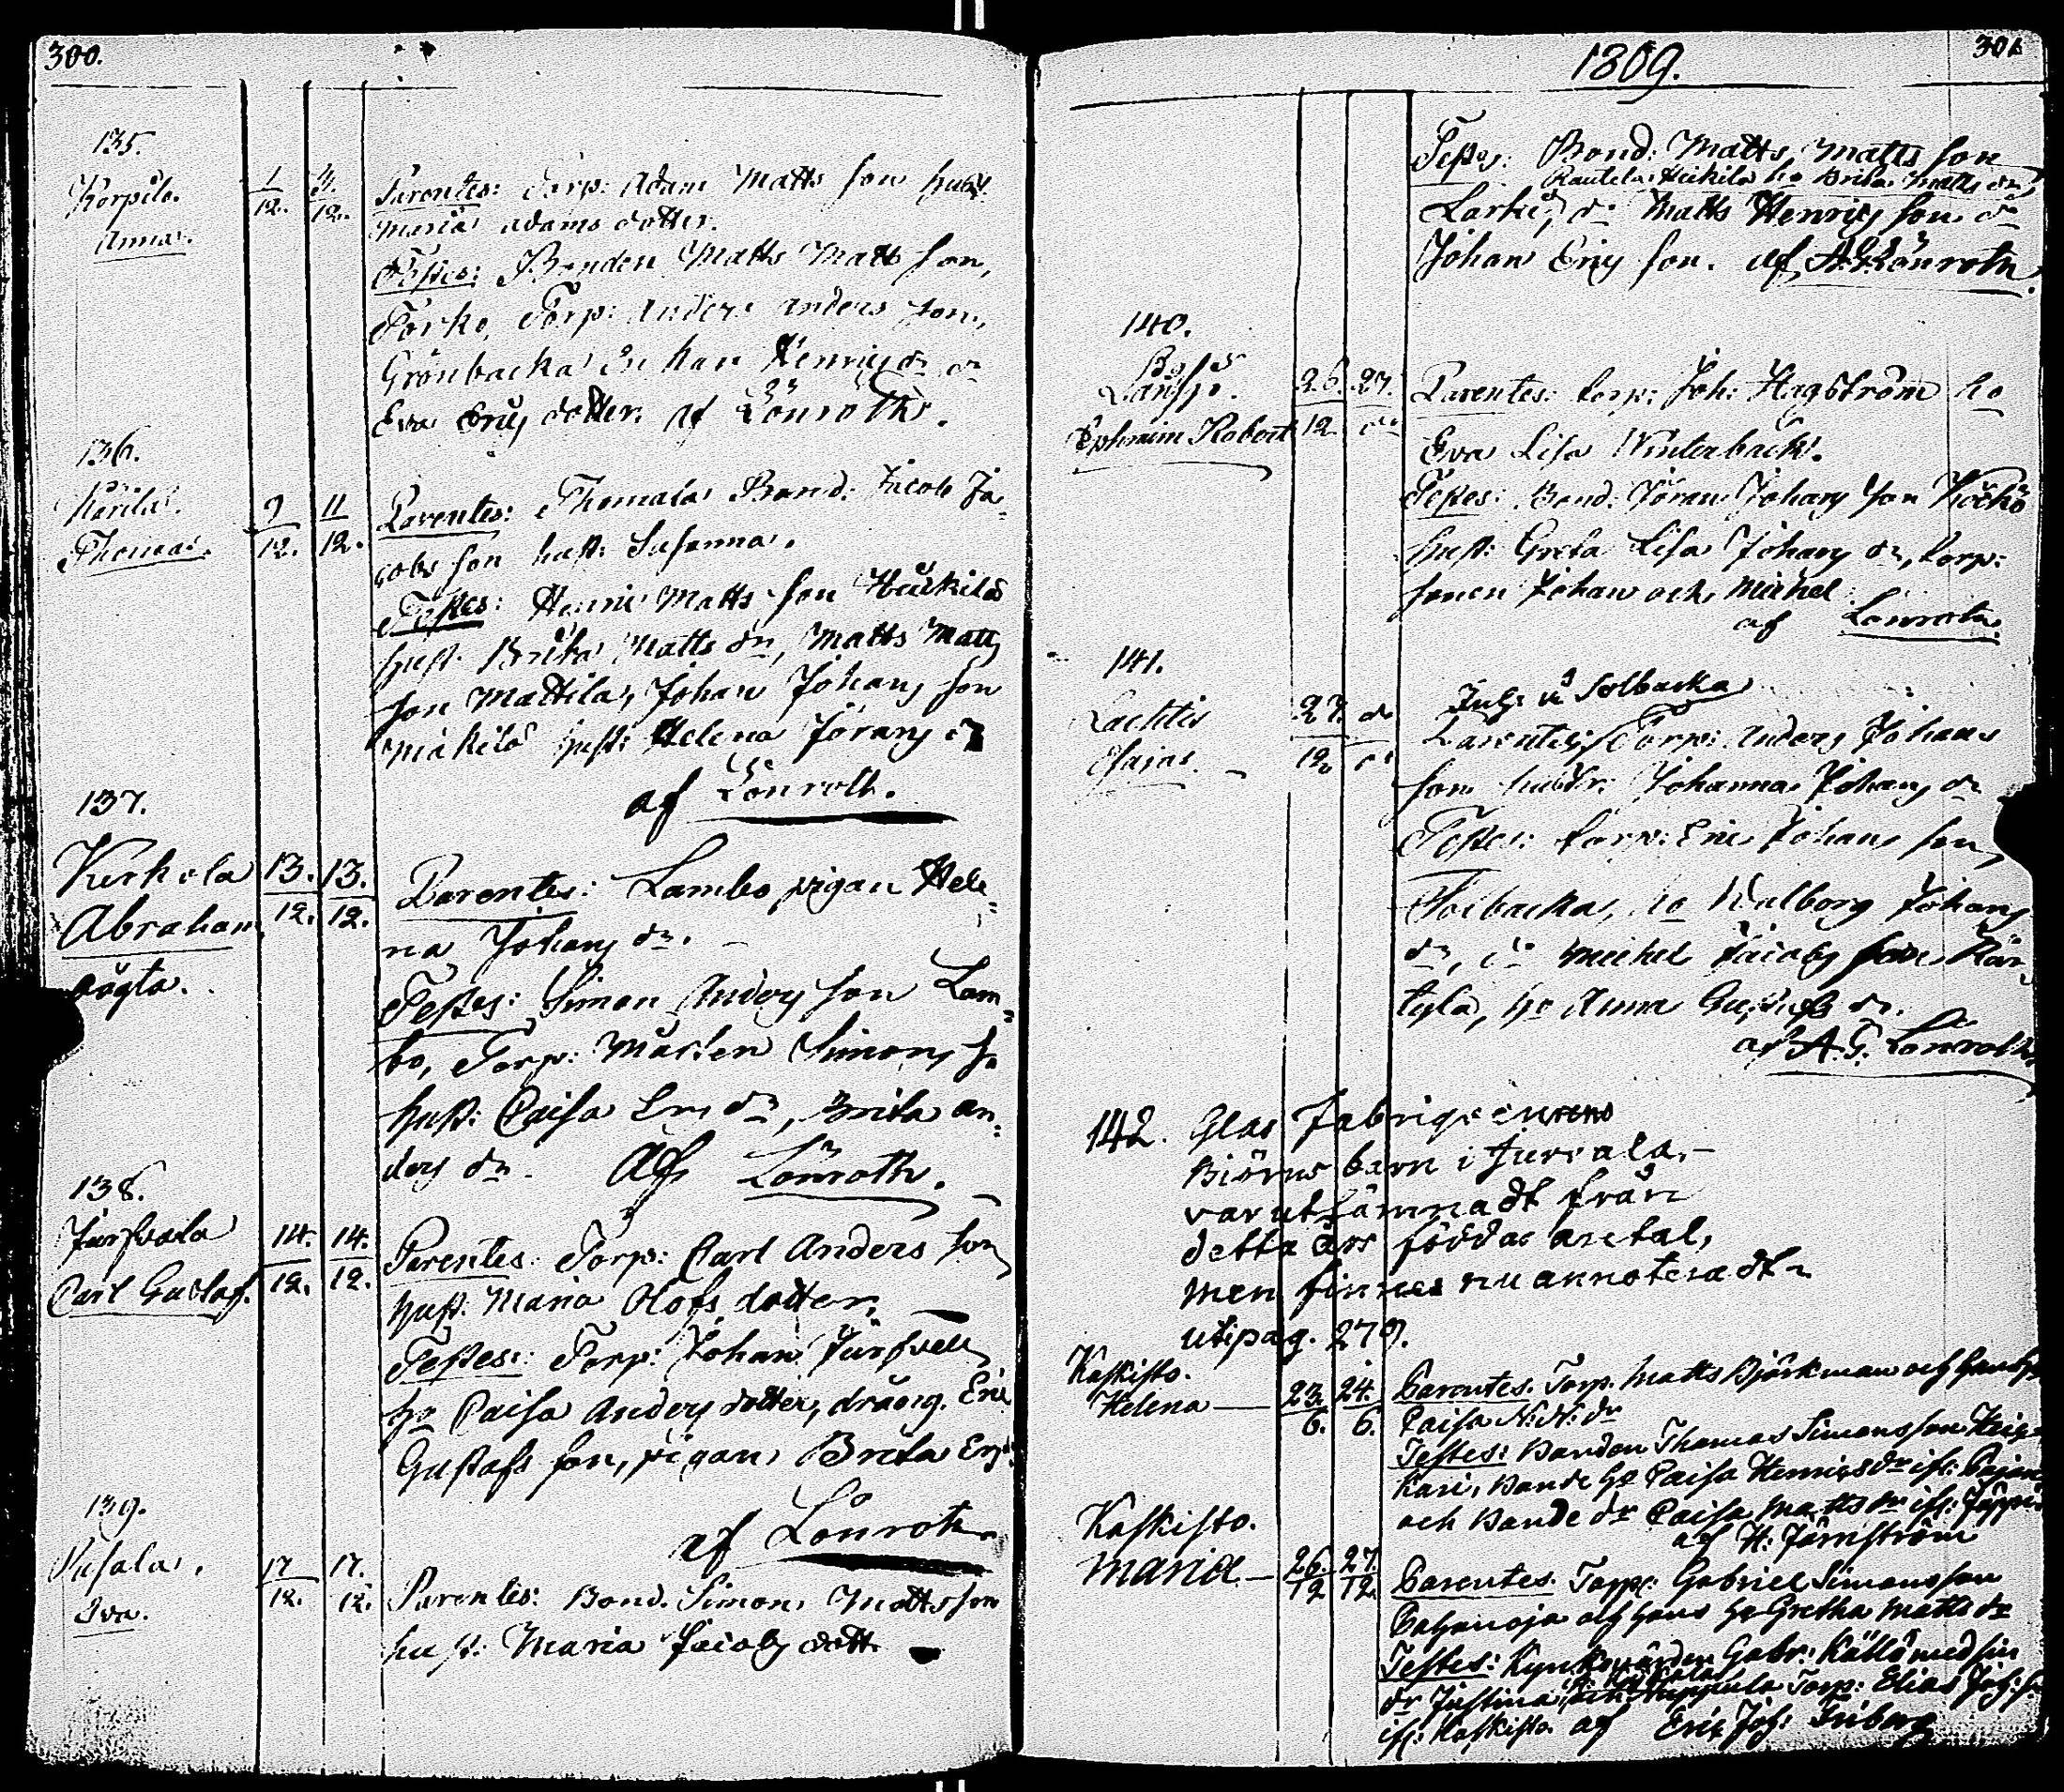 300.
135.
Korpilo.
Anna.
1/12. 3/12.
Parentes: Torp: Adam Matts son hust:
Maria Adams dotter.
Testes: Bonden Matts Matts son,
Torko, Torp: Anders Anders son,
Grönbacka
Eva Erics dotter. af Lönroth.
136.
Thomas.
9/12. 11/12.
Parentes: Thomala Bond: Jacob Ja-
cobs son hust: Susanna.
Testes: Henric Matts son Heikilä
hust: Brita Matts dr, Matts Matts
son Mattila, Johan Johans son
Mäkilä hust: Helena Jörans dr
af Lönroth.
137.
Kerkola
Abraham
oägta.
13./12. 13./12.
Parentes: Lambo pigan Hele-
na Johans dr.
Testes: Simon Anders son Lam-
bo, Torp: Mårten Simons so
hust: Caisa Eric dr, Brita An-
ders dr. Af Lönroth.
138.
Jurfvala
Carl Gustaf.
14./12. 14./12.
Parentes: Torp: Carl Anders son
hust. Maria Olofs dotter.
Testes: Torp: Johan Jurfvell
ho Caisa Anders dotter, dräng. Eric
Gustafs son, pigan Brita Ers
af Lönroth
139.
Pusala.
Eva.
17/12. 17./12.
Parentes: Bond. Simon Mattsson
hust: Maria Jacobs dott.
1809.
301
Testes: Bond: Matts Matts son
Rautila Heikilä ho Brita Matts dr,
Larki, do Matts Henrics son do
Johan Erics son. af A. G. Lönroth.
140.
Ephraim Robert
26./12. 27./do
Parentes: torp: Joh: Hagström ho
Eva Lisa Winterbäck.
Testes: Bond: Jöran Johans son Köckö
hust: Greta Lisa Johans dr, torp:
sonen Johan och Michel
af Lönroth.
141.
Lachtis
Esaias.
27./12. do/do
Inh: på Tolbacka
Parentes: Torp: Anders Johans
son hustr: Johanna Johans dr
Testes: torp: Eric Johans son,
Tolbacka, ho Walborg Johans
dr, do Michel Jacobs son Kän-
tylä, ho Anna Gustafs dr.
af A. G. Lönroth.
142. Glas Fabriqs
Biörns barn i Jurvala,
var utlämnadt från
detta års föddas antal,
men finnes nu annoteradt
uti pag. 279.
Koskisto.
Helena
23./6. 24./6.
Parentes. Torp. Matts Björkman och hans ho
Caisa N: N: dr
Testes: Bonden Thomas Simonsson
kari, Bonde ho Caisa Henricsdr ifr:
och Bonde dr Caisa Mattsdr ifr: Jäppi
af H: Jernström
Koskisto.
Maria
26./12 27./12
Parentes. Torp: Gabriel Simonsson
och hans ho Gretha Matts dr
Testes: Kyrkovärden Gabr: Källö med sin
dr Justina Torp: Elias Joh: s.
ifr: Koskisto af Eric Joh: Friberg